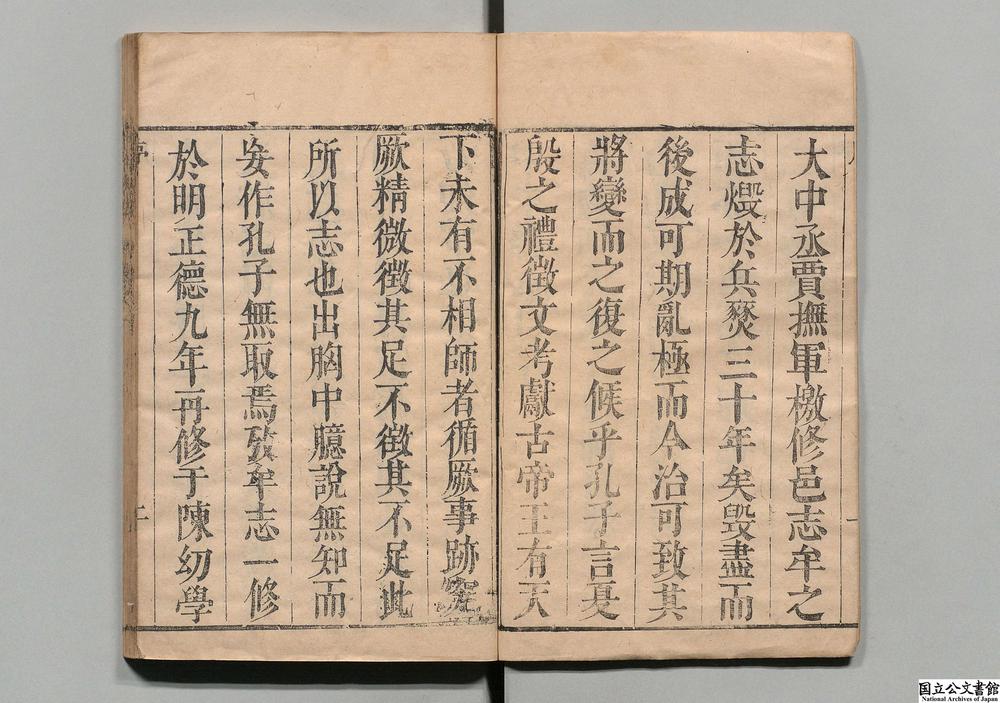 大中丞賈撫軍檄修邑志牟之
志燬於兵燹三十年矣毀盡而
後成可期亂極而今治可致其
將變而之復之候乎孔子言夏
殷之禮徵文考獻古帝王有天
下未有不相師者循厥事跡究
厥精微徵其足不徵其不足此
所以志也出胸中臆說無知而
妄作孔子無取焉攷牟志一修
於明正德九年再修于陳幼學
序
二
国立公文書館
National Archives of Japan